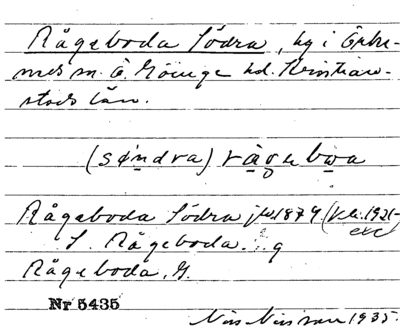 Rågeboda Södra, by i Örke-
neds sn. Ö. Göinge hd. Kristian-
stads län.
(søndra) rågebwa
Rågeboda Södra jb 1879 (K.c. 1921- exc)
S. Rågeboda. g
Rågeboda, G.
Nr 5435
Nils Nilsson 1935.